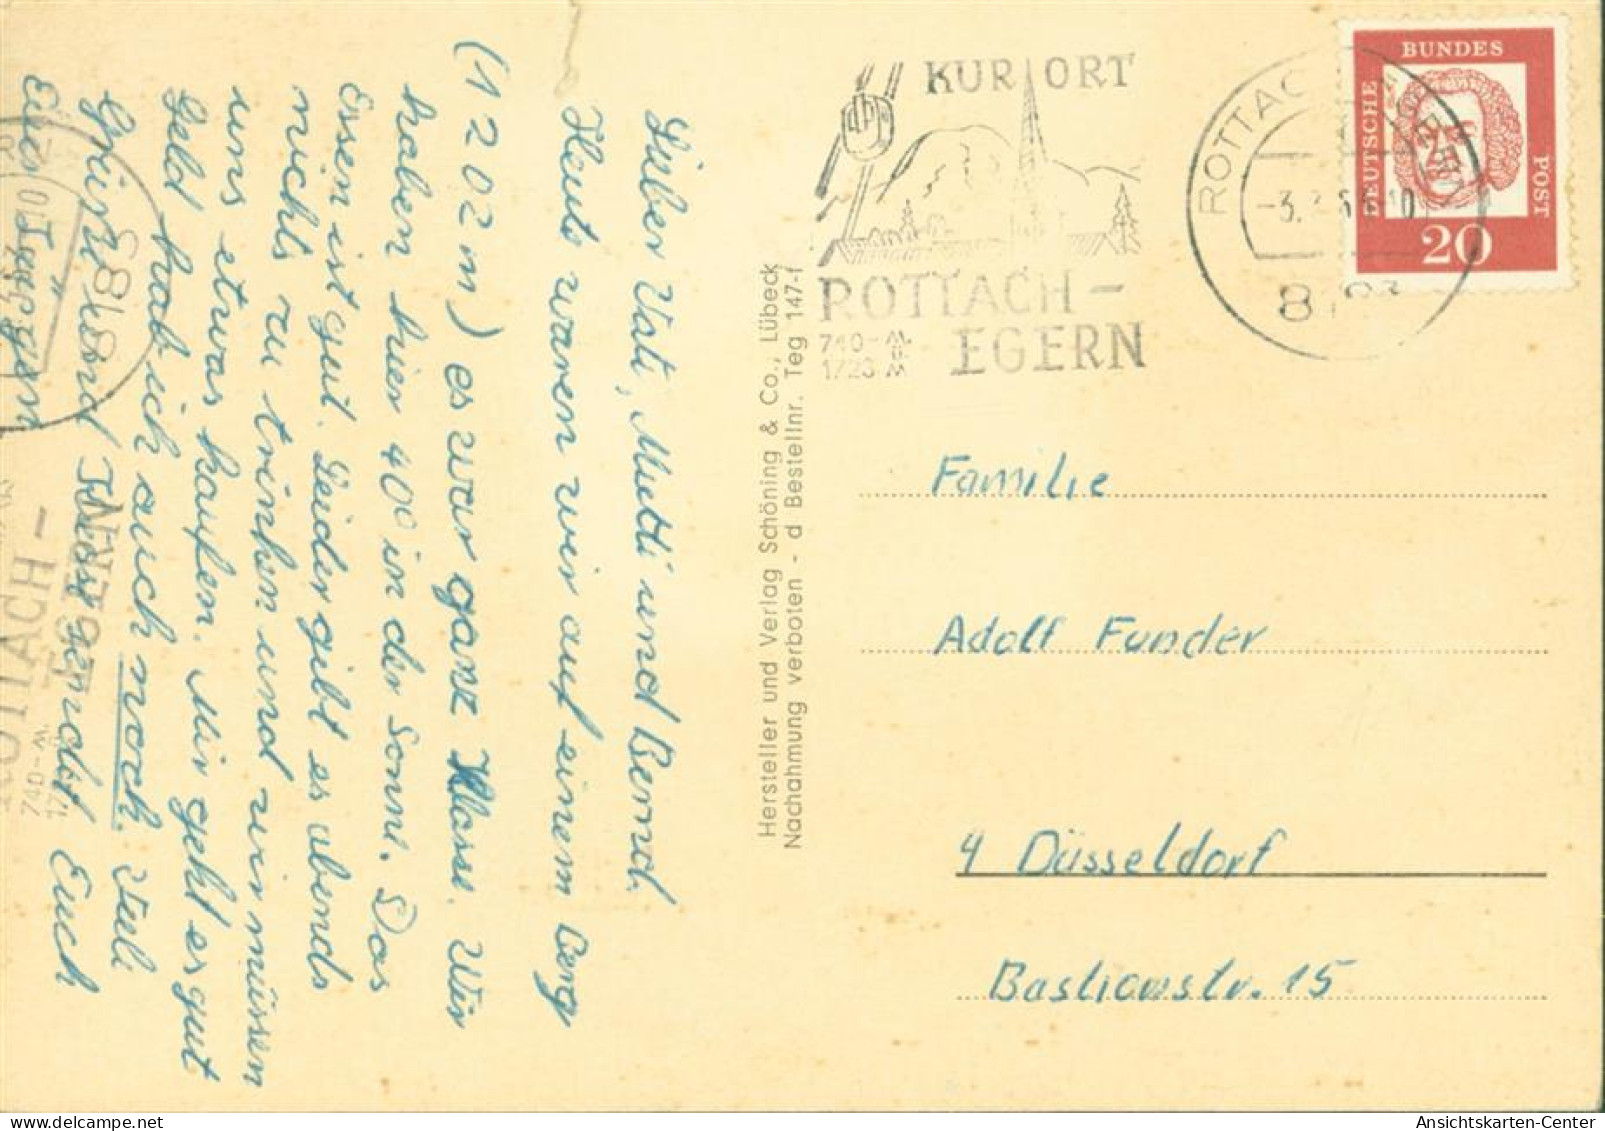 Lieber Vati, Mutti und Bernd.
Heute waren wir auf einem Berg
(1202 m) es war ganz Klasse. Wir
haben hier 40° in der Sonne. Das
Essen ist gut. Leider gibt es abends
nichts zu trinken und wir müssen
uns etwas kaufen. Mir geht es gut
Geld hab ich auch noch. Viele
Grüße und sendet Euch
Euer Jürgen
Hersteller und Verlag Schöning & Co., Lübeck
Nachahmung verboten - d Bestellnr. Teg 147-f
KURORT
ROTTACH-
EGERN
740-M.
1723 M
ROTTAC
-3.
10
8
DEUTSCHE
BUNDES
POST
20
Familie
Adolf Funder
4 Düsseldorf
Bastionstr. 15
8183
10
ROTTACH-
EGERN
740-M.
Ansichtskarten-Center